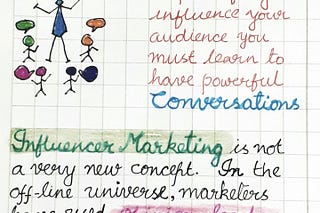 influence your
audience you
must learn to
have powerful
Conversations
Influencer Marketing is not
a very new concept. In the
off-line universe, marketers